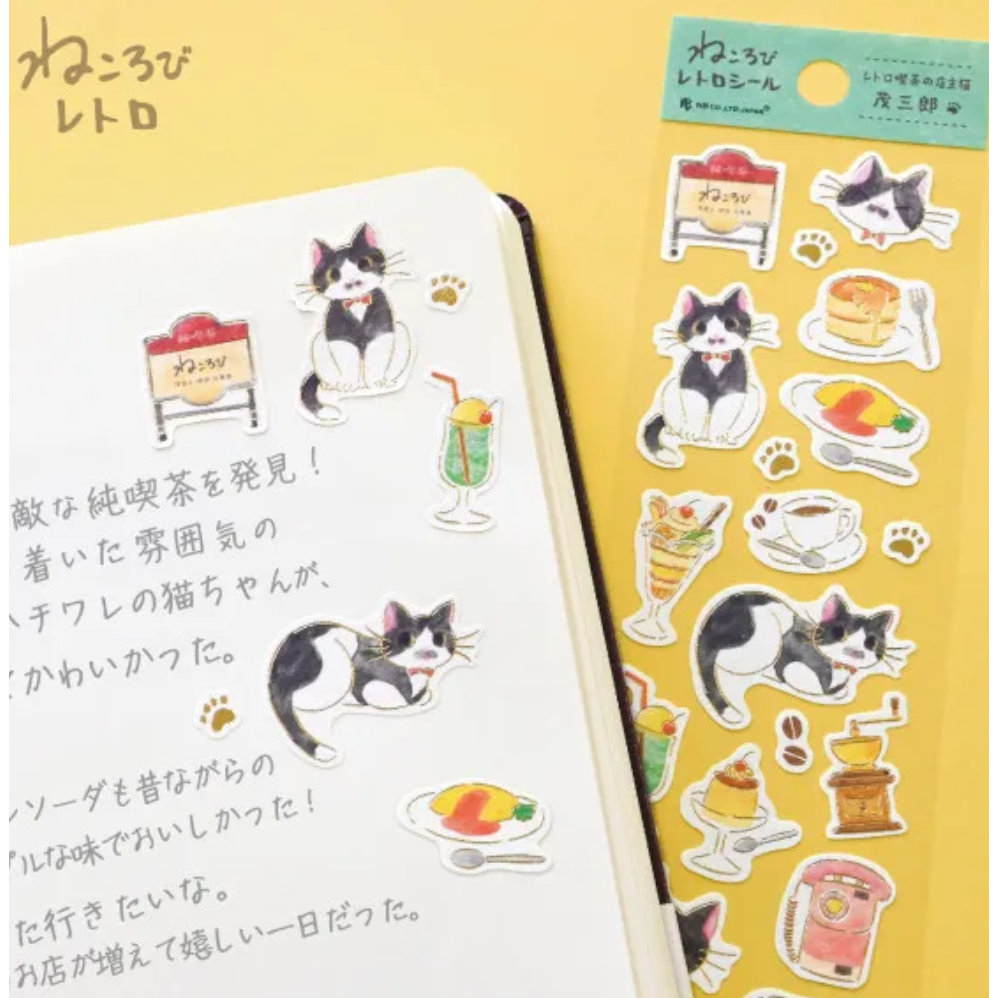 ねころび
レトロ
ねころび
レトロシール
NB CO.,LTD. JAPAN
レトロ喫茶の店主猫
茂三郎
純喫茶
ねころび
純喫茶
ねころび
敵な純喫茶を発見！
着いた雰囲気の
ハチワレの猫ちゃんが、
かわいかった。
ソーダも昔ながらの
プルな味でおいしかった！
た行きたいな。
お店が増えて嬉しい一日だった。